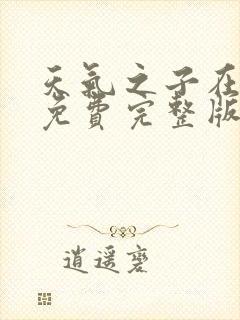 天氣之子在
免費完整版
逍遥裹